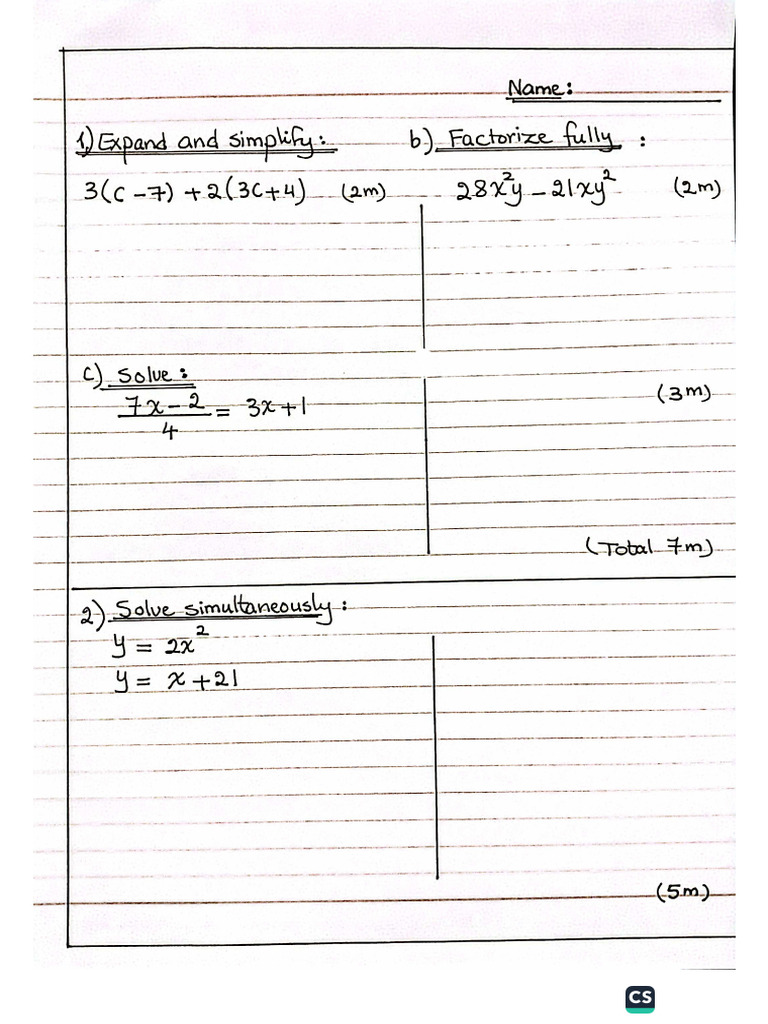 Name:
1) Expand and simplify: b.) Factorize fully :
3(c-7) + 2(3c+4) (2m) 28x²y - 21xy² (2m)
c) Solve:
(3m)
7x-2
____ = 3x+1
4
(Total 7m)
2) Solve simultaneously:
y = 2x²
y = x+21
(5m)
CS